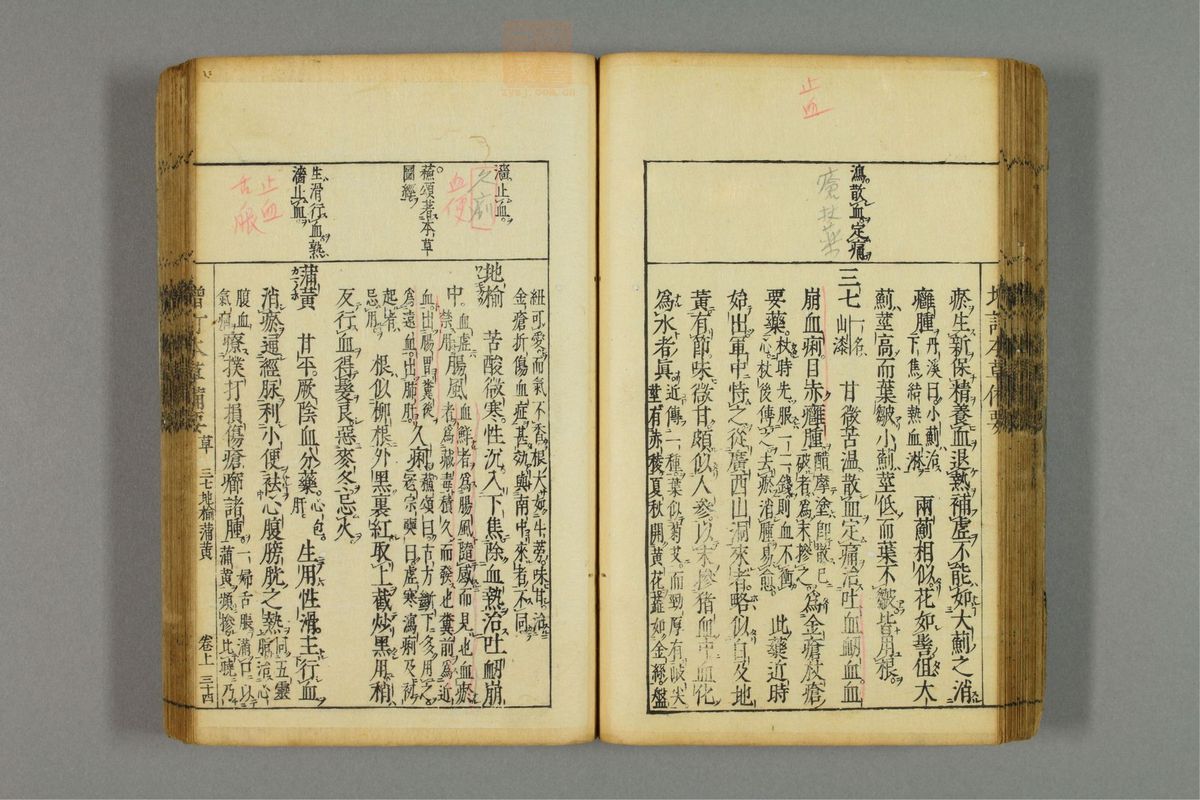 止血
瀉散血定痛
療杖藥
瘀生新保精養血退熱補虛不能如大薊之消
癰腫丹溪曰小薊治下焦結熱血淋 兩薊相似花如髻但大
薊莖高而葉皺小薊莖低而葉不皺皆用根
三七一名山漆 甘微苦溫散血定痛治吐血衄血血
崩血痢目赤癰腫醋摩塗即散已破者為末摻之為金瘡杖瘡
要藥杖時先服一二錢則血不衝心杖後傅之去瘀消腫易愈 此藥近時
始出軍中恃之從廣西山洞來者略似白及地
黃有節味微甘頗似人參以末摻猪血中血化
為水者真近傳一種葉似菊艾而勁厚有歧尖莖有赤稜夏秋開黃花蕋如金絲盤
濇止血
久痢
血便
蘇頌著本草
圖經
生滑行血熟
濇止血
止血
舌脹
紐可愛而氣不香根大如牛蒡味甘治金瘡折傷血症甚効與南中來者不同
地榆 苦酸微寒性沉入下焦除血熱治吐衄崩
中血虛禁用腸風血鮮者為腸風隨感而見也血瘀者為臟毒積久而發也糞前為近
血出腸胃糞後為遠血出肺肝久痢蘇頌曰古方斷下多用之寇宗奭曰虛寒瀉痢及初
起者忌用 根似柳根外黑裏紅取上截炒黑用梢
反行血得髮良惡麥冬忌火
蒲黃 甘平厥陰血分藥心包肝 生用性滑主行血
消瘀通經脉利小便祛心腹膀胱之熱同五靈脂治心
腹血氣痛療撲打損傷瘡癤諸腫一婦舌脹滿口以蒲黃頻摻比曉乃
增訂本草備要 草 三七地榆蒲黃 卷上 三十四